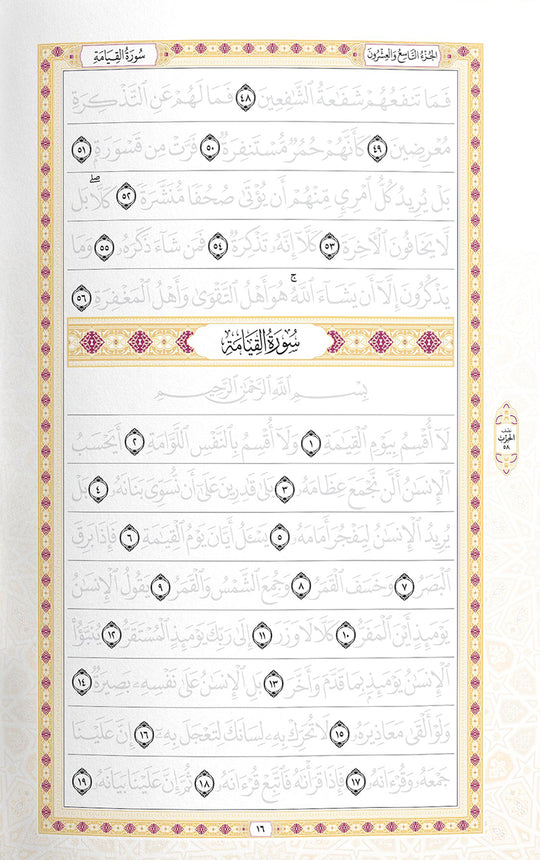 سُورَةُ القِيَامَةِ
الجُزْءُ التَّاسِعُ وَالعِشْرُونَ
فَمَا تَنفَعُهُمْ شَفَٰعَةُ ٱلشَّٰفِعِينَ ٤٨ فَمَا لَهُمْ عَنِ ٱلتَّذْكِرَةِ
مُعْرِضِينَ ٤٩ كَأَنَّهُمْ حُمُرٌ مُّسْتَنفِرَةٌ ٥٠ فَرَّتْ مِن قَسْوَرَةٍ ٥١
بَلْ يُرِيدُ كُلُّ ٱمْرِئٍ مِّنْهُمْ أَن يُؤْتَىٰ صُحُفًا مُّنَشَّرَةً ٥٢ كَلَّاۖ بَل
لَّا يَخَافُونَ ٱلْأٓخِرَةَ ٥٣ كَلَّآ إِنَّهُۥ تَذْكِرَةٌ ٥٤ فَمَن شَآءَ ذَكَرَهُۥ ٥٥ وَمَا
يَذْكُرُونَ إِلَّآ أَن يَشَآءَ ٱللَّهُۚ هُوَ أَهْلُ ٱلتَّقْوَىٰ وَأَهْلُ ٱلْمَغْفِرَةِ ٥٦
سُورَةُ القِيَامَةِ
بِسْمِ ٱللَّهِ ٱلرَّحْمَٰنِ ٱلرَّحِيمِ
لَآ أُقْسِمُ بِيَوْمِ ٱلْقِيَٰمَةِ ١ وَلَآ أُقْسِمُ بِٱلنَّفْسِ ٱللَّوَّامَةِ ٢ أَيَحْسَبُ
ٱلْإِنسَٰنُ أَلَّن نَّجْمَعَ عِظَامَهُۥ ٣ بَلَىٰ قَٰدِرِينَ عَلَىٰٓ أَن نُّسَوِّيَ بَنَانَهُۥ ٤ بَلْ
يُرِيدُ ٱلْإِنسَٰنُ لِيَفْجُرَ أَمَامَهُۥ ٥ يَسْـَٔلُ أَيَّانَ يَوْمُ ٱلْقِيَٰمَةِ ٦ فَإِذَا بَرِقَ
ٱلْبَصَرُ ٧ وَخَسَفَ ٱلْقَمَرُ ٨ وَجُمِعَ ٱلشَّمْسُ وَٱلْقَمَرُ ٩ يَقُولُ ٱلْإِنسَٰنُ
يَوْمَئِذٍ أَيْنَ ٱلْمَفَرُّ ١٠ كَلَّا لَا وَزَرَ ١١ إِلَىٰ رَبِّكَ يَوْمَئِذٍ ٱلْمُسْتَقَرُّ ١٢ يُنَبَّؤُا۟
ٱلْإِنسَٰنُ يَوْمَئِذٍۭ بِمَا قَدَّمَ وَأَخَّرَ ١٣ بَلِ ٱلْإِنسَٰنُ عَلَىٰ نَفْسِهِۦ بَصِيرَةٌ ١٤
وَلَوْ أَلْقَىٰ مَعَاذِيرَهُۥ ١٥ لَا تُحَرِّكْ بِهِۦ لِسَانَكَ لِتَعْجَلَ بِهِۦٓ ١٦ إِنَّ عَلَيْنَا
جَمْعَهُۥ وَقُرْءَانَهُۥ ١٧ فَإِذَا قَرَأْنَٰهُ فَٱتَّبِعْ قُرْءَانَهُۥ ١٨ ثُمَّ إِنَّ عَلَيْنَا بَيَانَهُۥ ١٩
نصف
الحزب
٥٨
١٦